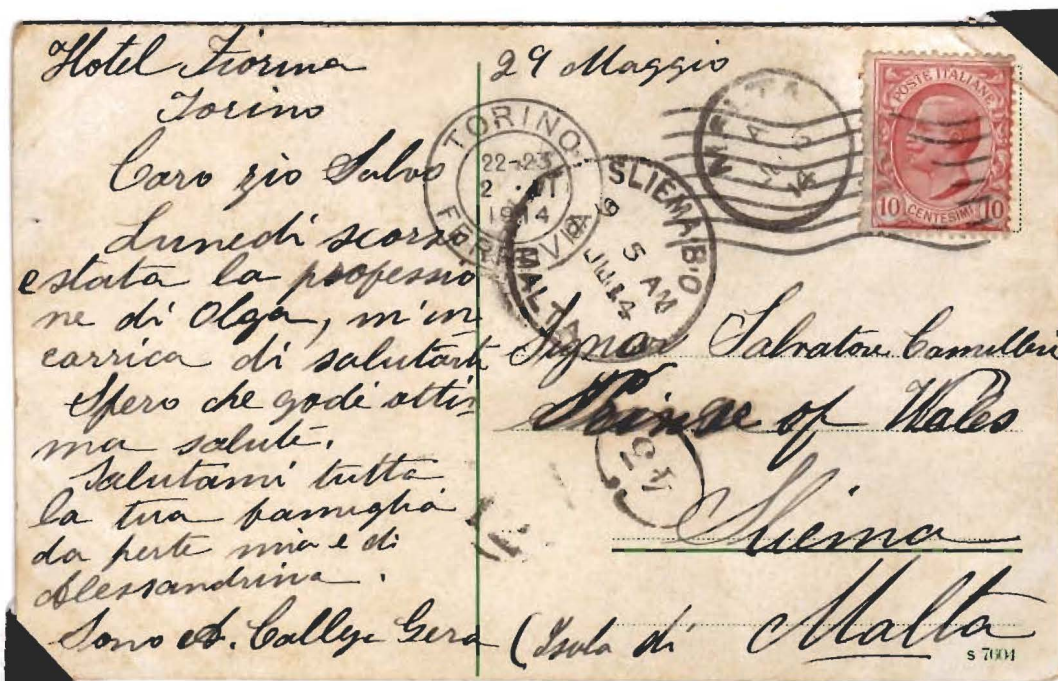 Hotel Fiorina
Torino
29 Maggio
Caro zio Salvo
Lunedi scorso
estata la professio
ne di Olga, m'in
carrica di salutarti
Spero che godi otti
ma salute.
Salutami tutta
la tua famiglia
da parte mia e di
Alessandrina.
Sono A. Calleja Gera
TORINO
22-23
1914
FERROVIA
MALTA
14
SLIEMA B.O
5 AM
MALTA
POSTE ITALIANE
10 CENTESIMI 10
Signor Salvatore Camilleri
Prince of Wales
Sliema
(Isola di Malta
S 7604